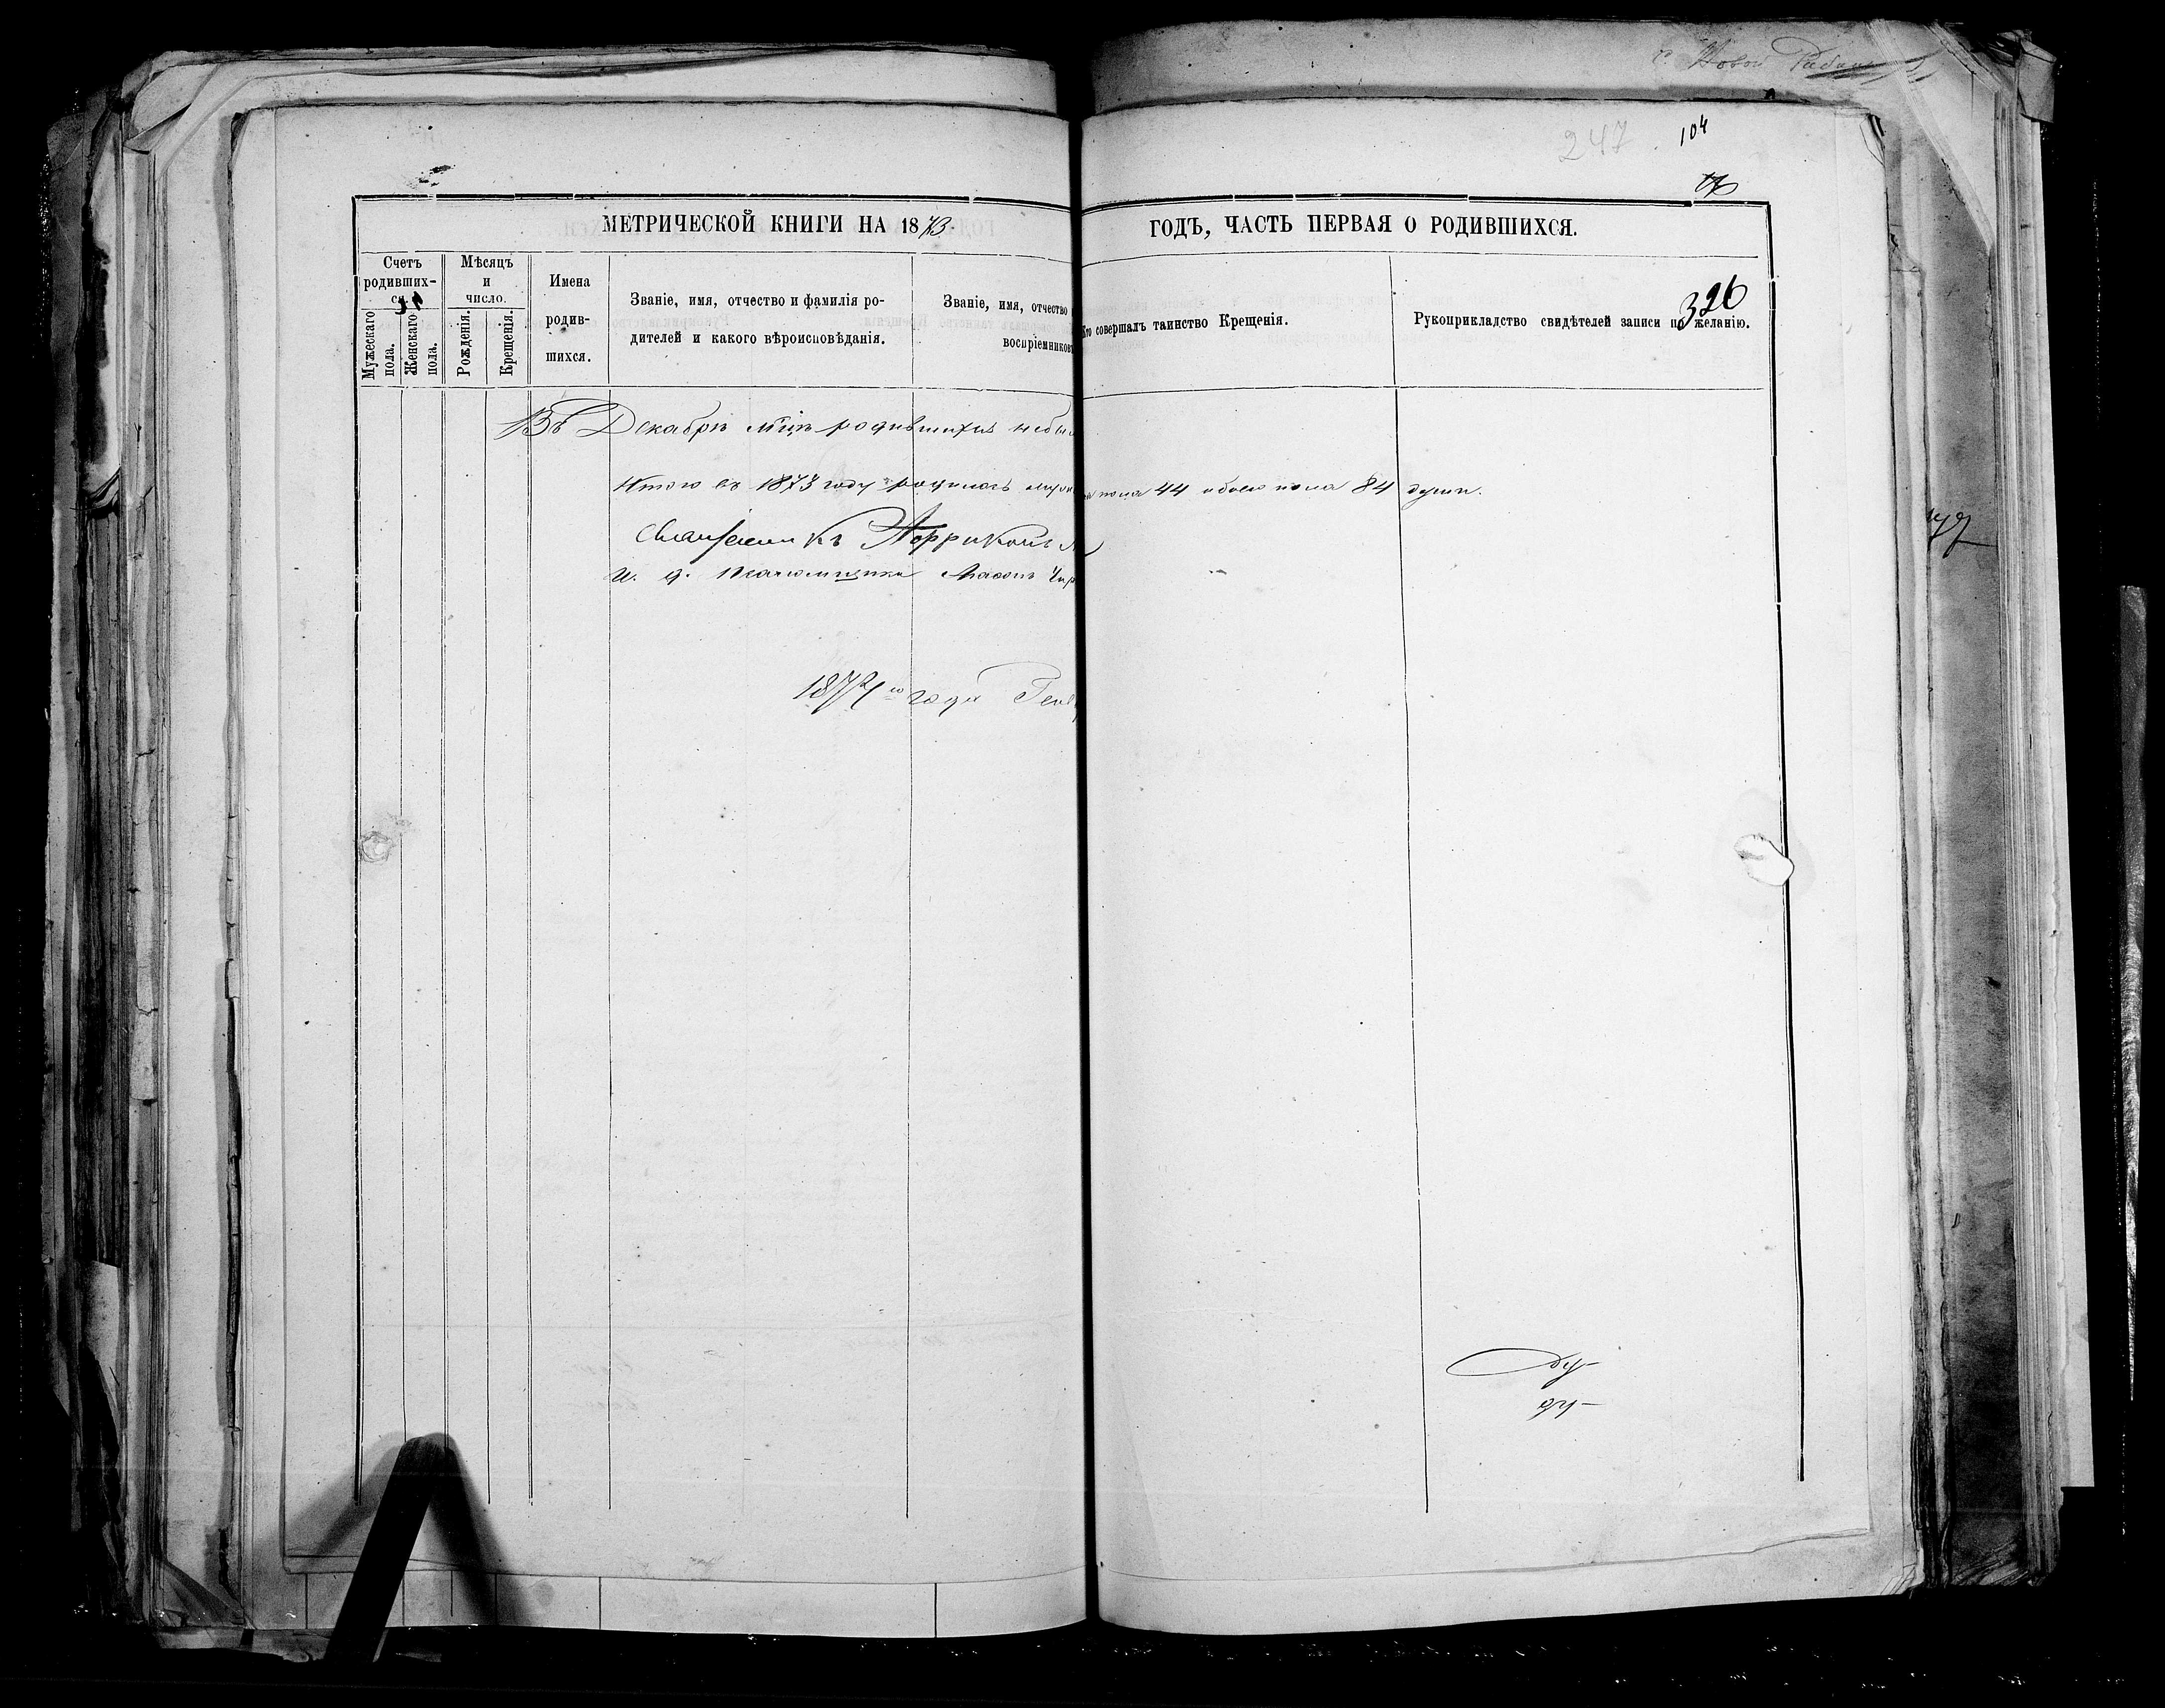 с. Новой
247
104
МЕТРИЧЕСКОЙ КНИГИ НА 1873 ГОДЪ, ЧАСТЬ ПЕРВАЯ О РОДИВШИХСЯ.
326
Счетъ родивших-ся.
Мужескаго пола.
Женскаго пола.
Мѣсяцъ и число.
Рожденія.
Крещенія.
Имена родив-шихся.
Званіе, имя, отчество и фамилія ро-дителей и какого вѣроисповѣданія.
Званіе, имя, отчество
воспріемниковъ
Кто совершалъ таинство Крещенія.
Рукоприкладство свидѣтелей записи по желанію.
Въ Декабрѣ м-цѣ родившихся небы
Итого въ 1873 году родилось пола 44 обоего пола 84 души.
И. д.
года Генв